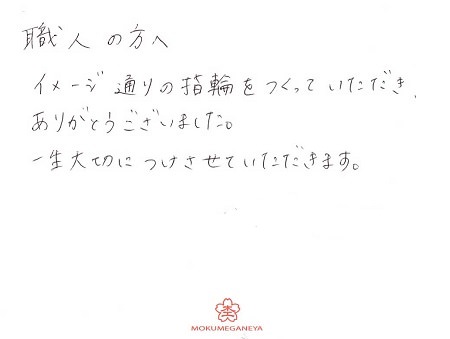 職人の方へ
イメージ通りの指輪をつくっていただき、
ありがとうございました。
一生大切につけさせていただきます。
杢
MOKUMEGANEYA